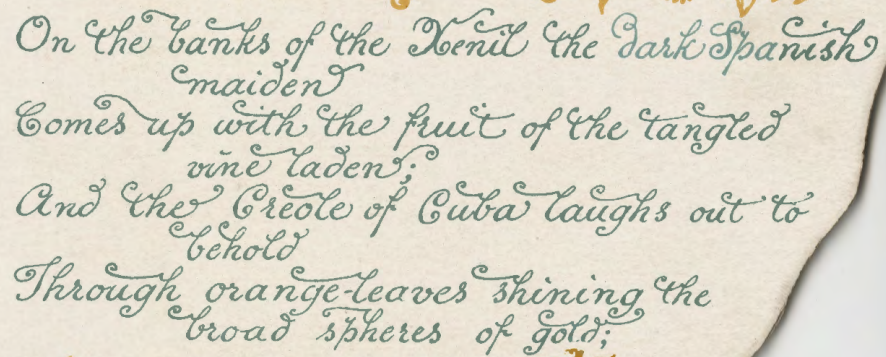 On the banks of the Xenil the dark Spanish
maiden
Comes up with the fruit of the tangled
vine laden;
And the Creole of Cuba laughs out to
behold
Through orange-leaves shining the
broad spheres of gold;